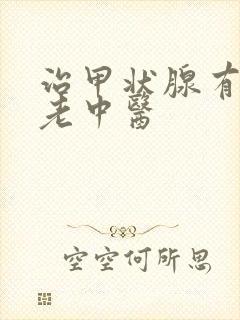 治甲状腺有
老中醫
空空何所思